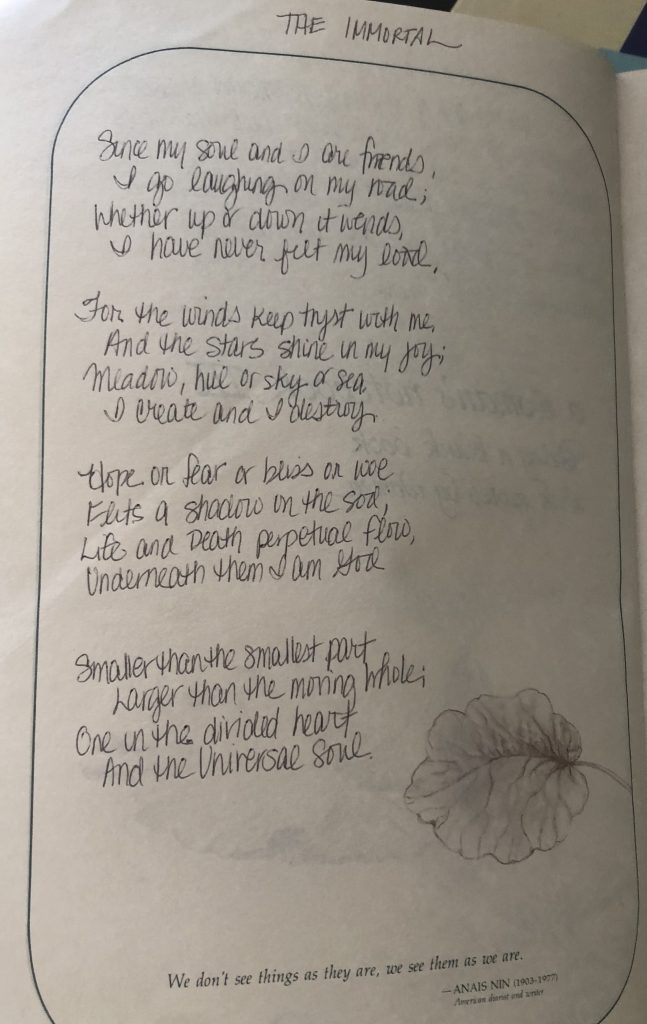 THE IMMORTAL
Since my soul and I are friends,
I go laughing on my road;
Whether up or down it wends,
I have never felt my load.
For the winds keep tryst with me,
And the stars shine in my joy;
Meadow, hill or sky or sea
I create and I destroy.
Hope or fear or bliss or woe
Flits a shadow on the sod;
Life and Death perpetual flow,
Underneath them I am God
Smaller than the smallest part
Larger than the moving whole;
One in the divided heart
And the Universal Soul.
We don't see things as they are, we see them as we are.
—ANAIS NIN (1903-1977)
American diarist and writer